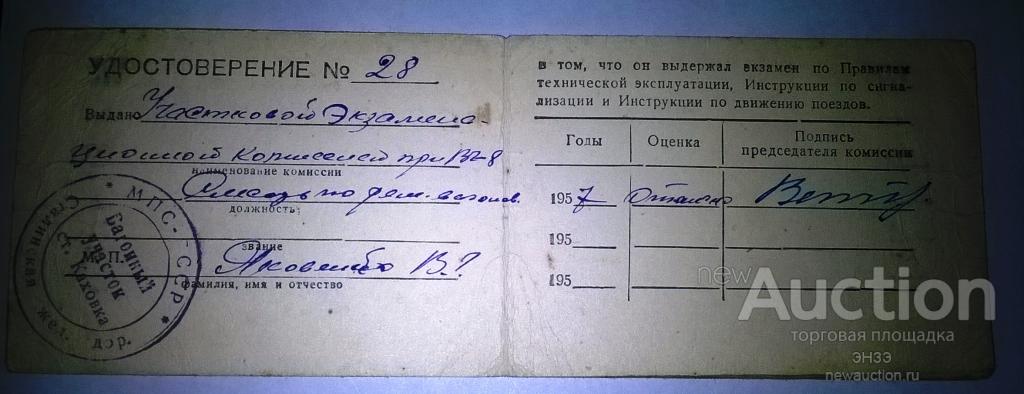 УДОСТОВЕРЕНИЕ № 28
Выдано Участковой Экзамена-
ционной Комиссией при ВЧ-8
наименование комиссии
по рем. вагонов.
должность
звание
М. П.
Яковенко В.
фамилия, имя и отчество
* МПС - СССР *
Сталинская жел. дор.
Вагонный
участок
ст. Каховка
в том, что он выдержал экзамен по Правилам
технической эксплуатации, Инструкции по сигна-
лизации и Инструкции по движению поездов.
Годы Оценка Подпись
председателя комиссии
1957 отлично
195
195
newAuction
торговая площадка
ЭНЗЭ
newauction.ru